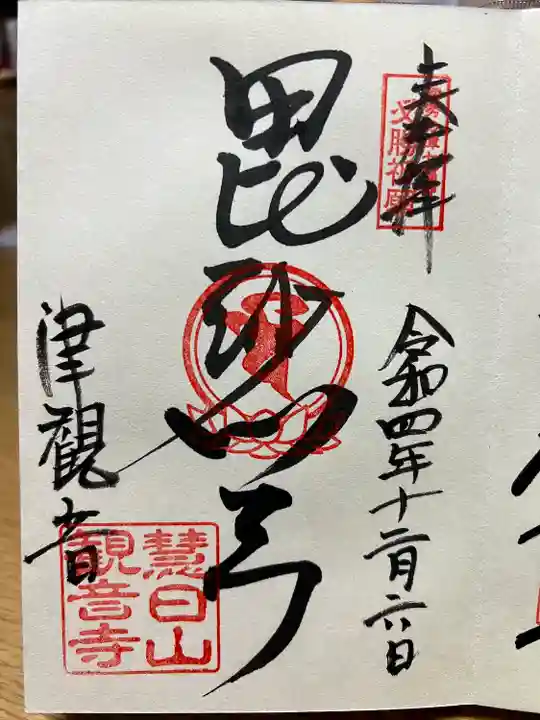 奉拝
必勝祈願
令和四年十二月六日
毘沙門天
津観音
慧日山
観音寺